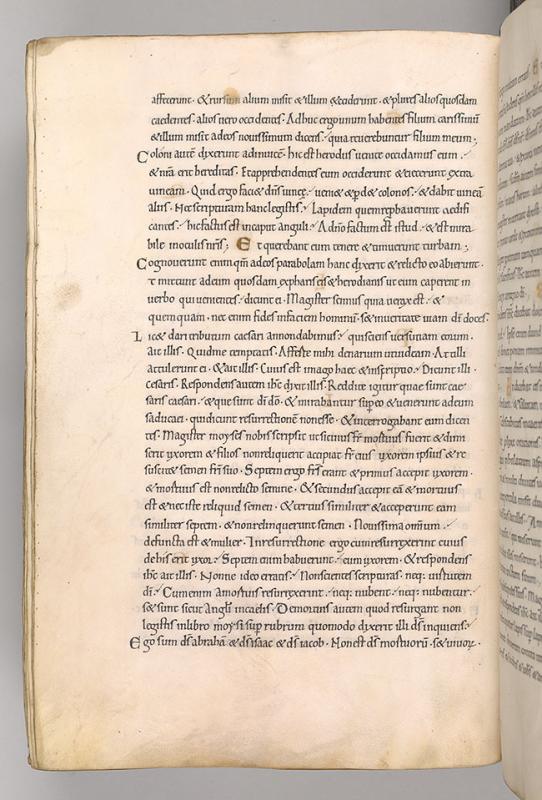 affecerunt · & rursum alium misit & illum occiderunt · & plures alios quosdam
caedentes · alios vero occidentes · Adhuc ergo unum habens filium carissimum
& illum misit ad eos novissimum dicens · quia reverebuntur filium meum ·
Coloni autē dixerunt ad invicē · hic est heres venite occidamus eum
& nrā erit hereditas · Et apprehendentes eum occiderunt & eiecerunt extra
vineam · Quid ergo faci& dn̄s vineę · veni& & p̄d& colonos · & dabit vineā
aliis · Nec scripturam hanc legistis · Lapidem quem reprobaverunt aedifi
cantes · hic factus est in caput anguli · A dn̄o factum est istud · & est mira
bile in oculis nr̄is ; Et querebant eum tenere & timuerunt turbam ;
Cognoverunt enim qm̄ ad eos parabolam hanc dixerit & relicto eo abierunt ·
t mittunt ad eum quosdam ex phariseis & herodianis ut eum caperent in
verbo qui venientes · dicunt ei · Magister scimus quia verax es · &
quemquam · nec enim vides in faciem hominū · sed in veritate viam dī doces
Lic& dari tributum caesari an non dabimus · qui sciens versutiam eorum ·
ait illis · Quid me temptatis · Afferte mihi denarium ut videam · At illi
attulerunt ei · & ait illis · Cuius est imago haec & inscriptio · Dicunt illi ·
cesaris · Respondens autem ih̄c dixit illis · Reddite igitur quae sunt cae
saris caesari · & que sunt dī dō · & mirabantur sup̄ eo & venerunt ad eum
saducaei · qui dicunt resurrectionē non esse · & interrogabant eum dicen
tes · Magister moyses nobis scripsit ut si cuius fr̄ mortuus fuerit & dimi
serit uxorem & filios non reliquerit accipiat fr̄ eius uxorem ipsius & re
suscit& semen fr̄i suo · Septem ergo fr̄s erant & primus accepit uxorem ·
& mortuus est non relicto semine · & secundus accepit eā & mortuus
est & nec iste reliquid semen · & tertius similiter & acceperunt eam
similiter septem · & non relinquerunt semen · Novissima omium ·
defuncta est & mulier · In resurrectione ergo cum resurrexerint cuius
de his erit uxor · Septem enim habuerunt eum uxorem · & respondens
ih̄c ait illis · Nonne ideo erratis · Non scientes scripturas · neq; virtutem
dī · Cum enim a mortuis resurrexerint · neq; nubent · neq; nubentur ·
sed sunt sicut angli in caelis · De mortuis autem quod resurgant non
legistis in libro moysi sup̄ rubrum quomodo dixerit illi ds̄ inquiens ·
Ego sum ds̄ abrahā & ds̄ isaac & ds̄ iacob · Non est ds̄ mortuorū · sed vivor